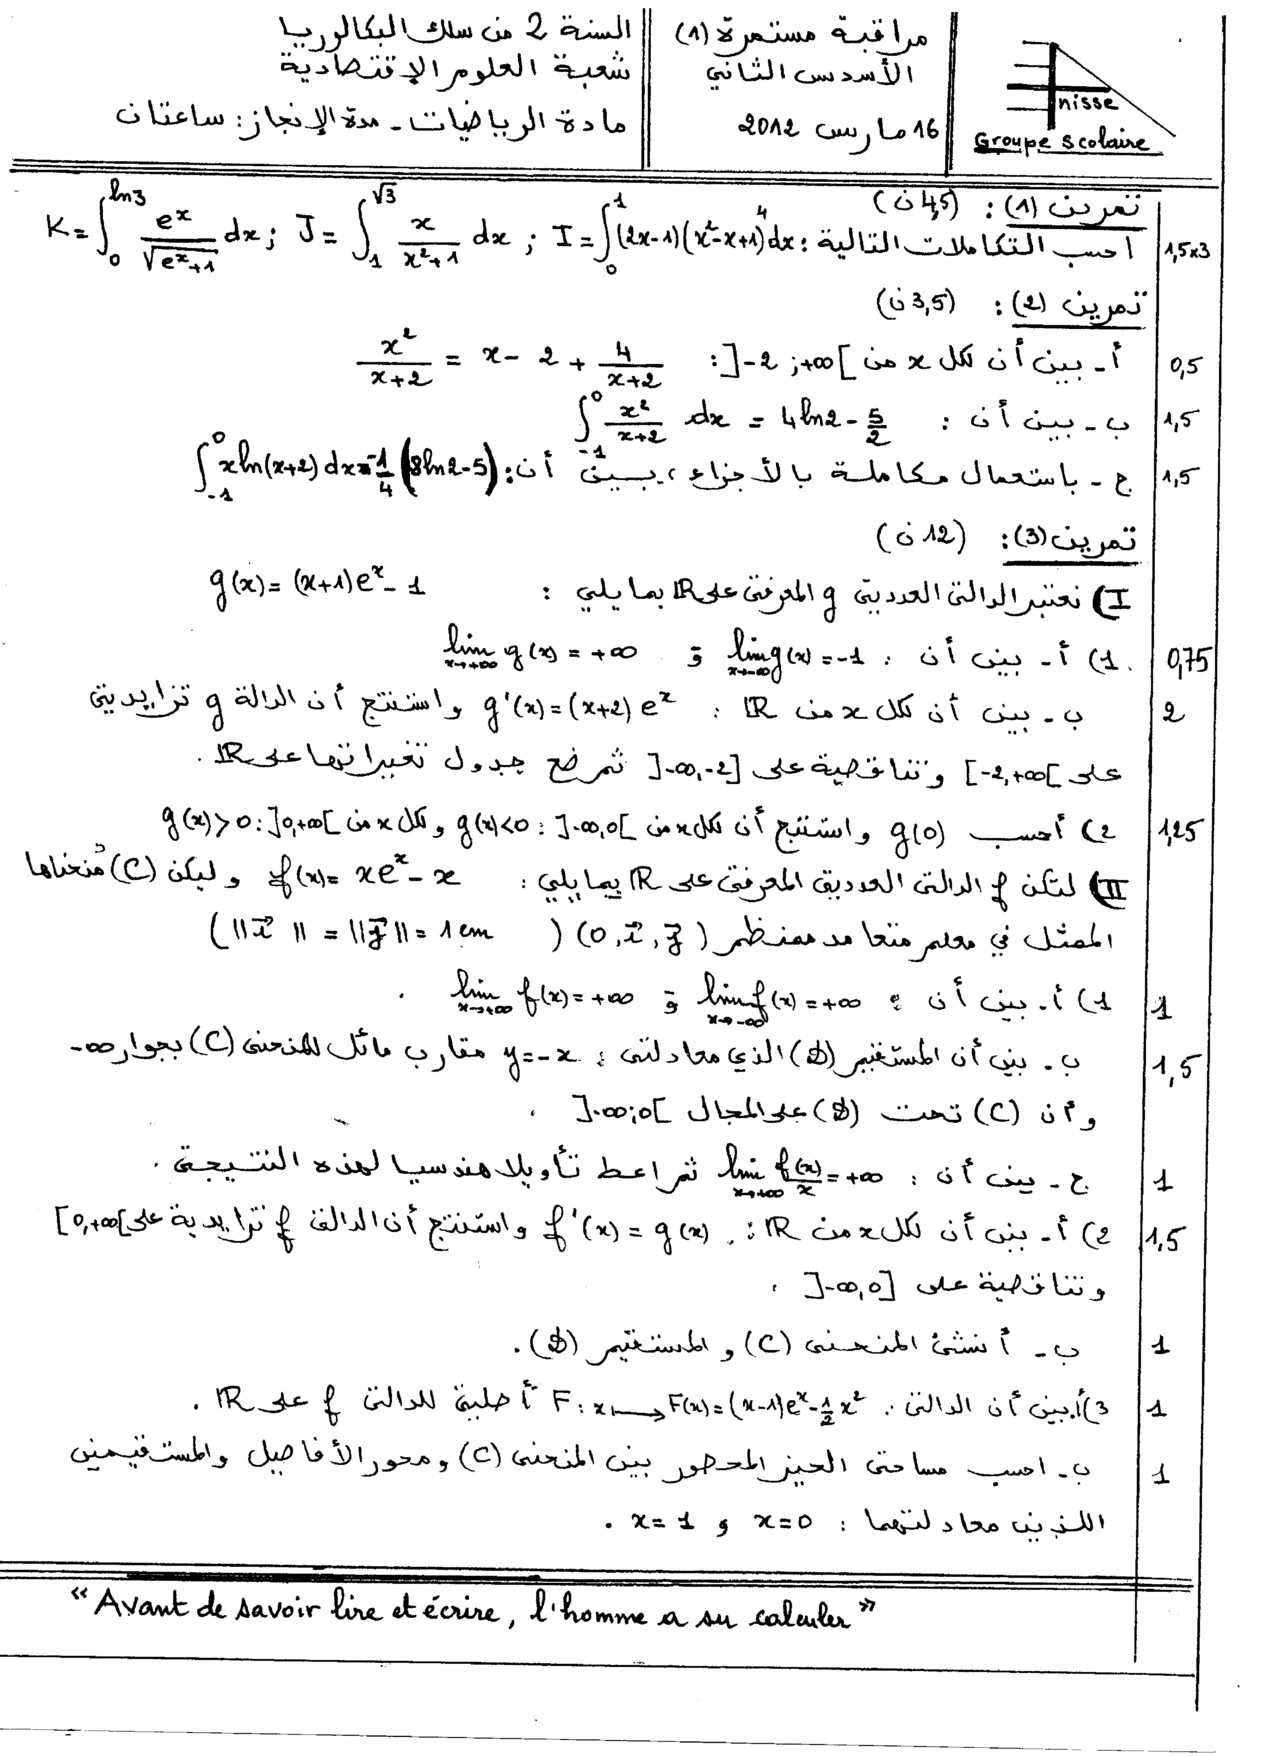 السنة 2 من سلك البكالوريا
شعبة العلوم الإقتصادية
مادة الرياضيات - مدة الإنجاز: ساعتان
مراقبة مستمرة (1)
الأسدس الثاني
16 مارس 2012
nisse
Groupe scolaire
تمرين (1): (4,5 ن)
1,5x3 احسب التكاملات التالية: I = ∫₀¹ (2x-1)(x²-x+1)⁴ dx ; J = ∫₁^√3 x/(x²+1) dx ; K = ∫₀^ln3 eˣ/√(eˣ+1) dx
تمرين (2): (3,5 ن)
0,5 أ- بين أن لكل x من ]-2;+∞[ : x²/(x+2) = x - 2 + 4/(x+2)
1,5 ب- بين أن : ∫₋₁⁰ x²/(x+2) dx = 4ln2 - 5/2
1,5 ج- باستعمال مكاملة بالأجزاء، بين أن: ∫₋₁⁰ xln(x+2)dx = -1/4 (8ln2-5)
تمرين (3): (12 ن)
I) نعتبر الدالة العددية g المعرفة على IR بما يلي : g(x) = (x+1)eˣ - 1
0,75 1) أ- بين أن : lim x→-∞ g(x) = -1 و lim x→+∞ g(x) = +∞
2 ب- بين أن لكل x من IR : g'(x) = (x+2)eˣ واستنتج أن الدالة g تزايدية
على [-2,+∞[ وتناقصية على ]-∞,-2] ثم ضع جدول تغيراتها على IR.
1,25 2) أحسب g(0) واستنتج أن لكل x من ]-∞,0[ : g(x)<0 ولكل x من ]0,+∞[ : g(x)>0
II) لتكن f الدالة العددية المعرفة على IR بما يلي : f(x) = xeˣ - x وليكن (C) منحناها
الممثل في معلم متعامد ممنظم (O,i⃗,j⃗) (||i⃗|| = ||j⃗|| = 1cm)
1 1) أ- بين أن : lim x→-∞ f(x) = +∞ و lim x→+∞ f(x) = +∞ .
1,5 ب- بين أن المستقيم (D) الذي معادلته : y=-x مقارب مائل للمنحنى (C) بجوار -∞
وأن (C) تحت (D) على المجال ]-∞;0[ .
1 ج- بين أن : lim x→+∞ f(x)/x = +∞ ثم اعط تأويلا هندسيا لهذه النتيجة .
1,5 2) أ- بين أن لكل x من IR : f'(x) = g(x) واستنتج أن الدالة f تزايدية على [0,+∞[
وتناقصية على ]-∞,0] .
1 ب- أنشئ المنحنى (C) و المستقيم (D).
1 3) أ. بين أن الدالة : F: x↦F(x) = (x-1)eˣ - 1/2 x² أصلية للدالة f على IR .
1 ب- احسب مساحة الحيز المحصور بين المنحنى (C) ومحور الأفاصيل والمستقيمين
اللذين معادلتهما : x=0 و x=1 .
"Avant de savoir lire et écrire, l'homme a su calculer"